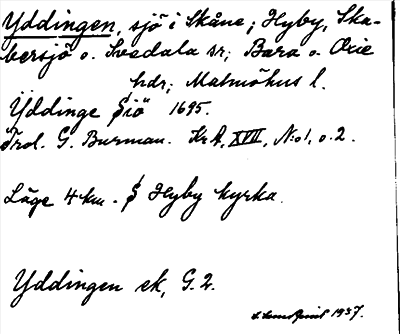 Yddingen, sjö i Skåne; Hyby, Ska-
bersjö o. Svedala sr; Bara o. Oxie
hdr; Malmöhus l.
Yddinge Siö 1695.
Trol. G. Burman. KrA, XVII, N:o 1, o. 2.
Läge 4 km. S Hyby kyrka.
Yddingen ek, G. 2.
1937.